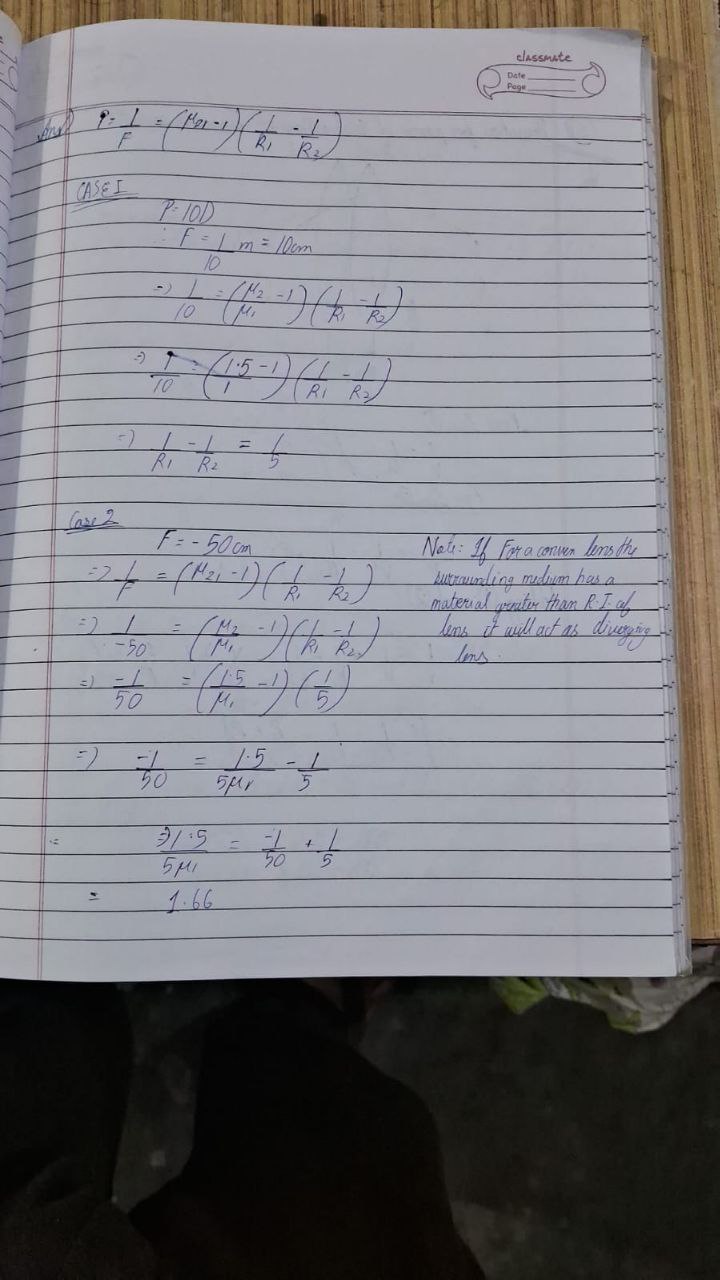 classmate
Date
Page
Ans) P = 1/F = (μ21 - 1) (1/R1 - 1/R2)
CASE I
P = 10D
∴ F = 1/10 m = 10cm
=> 1/10 = (μ2/μ1 - 1) (1/R1 - 1/R2)
=> 1/10 = (1.5/1 - 1) (1/R1 - 1/R2)
=> 1/R1 - 1/R2 = 1/5
Case 2
F = - 50 cm
=> 1/F = (μ21 - 1) (1/R1 - 1/R2)
=> 1/-50 = (μ2/μ1 - 1) (1/R1 - 1/R2)
=> -1/50 = (1.5/μ1 - 1) (1/5)
=> -1/50 = 1.5/5μ1 - 1/5
= => 1.5/5μ1 = -1/50 + 1/5
= 1.66
Note: If For a convex lens the
surrounding medium has a
material greater than R.I. of
lens it will act as diverging
lens.